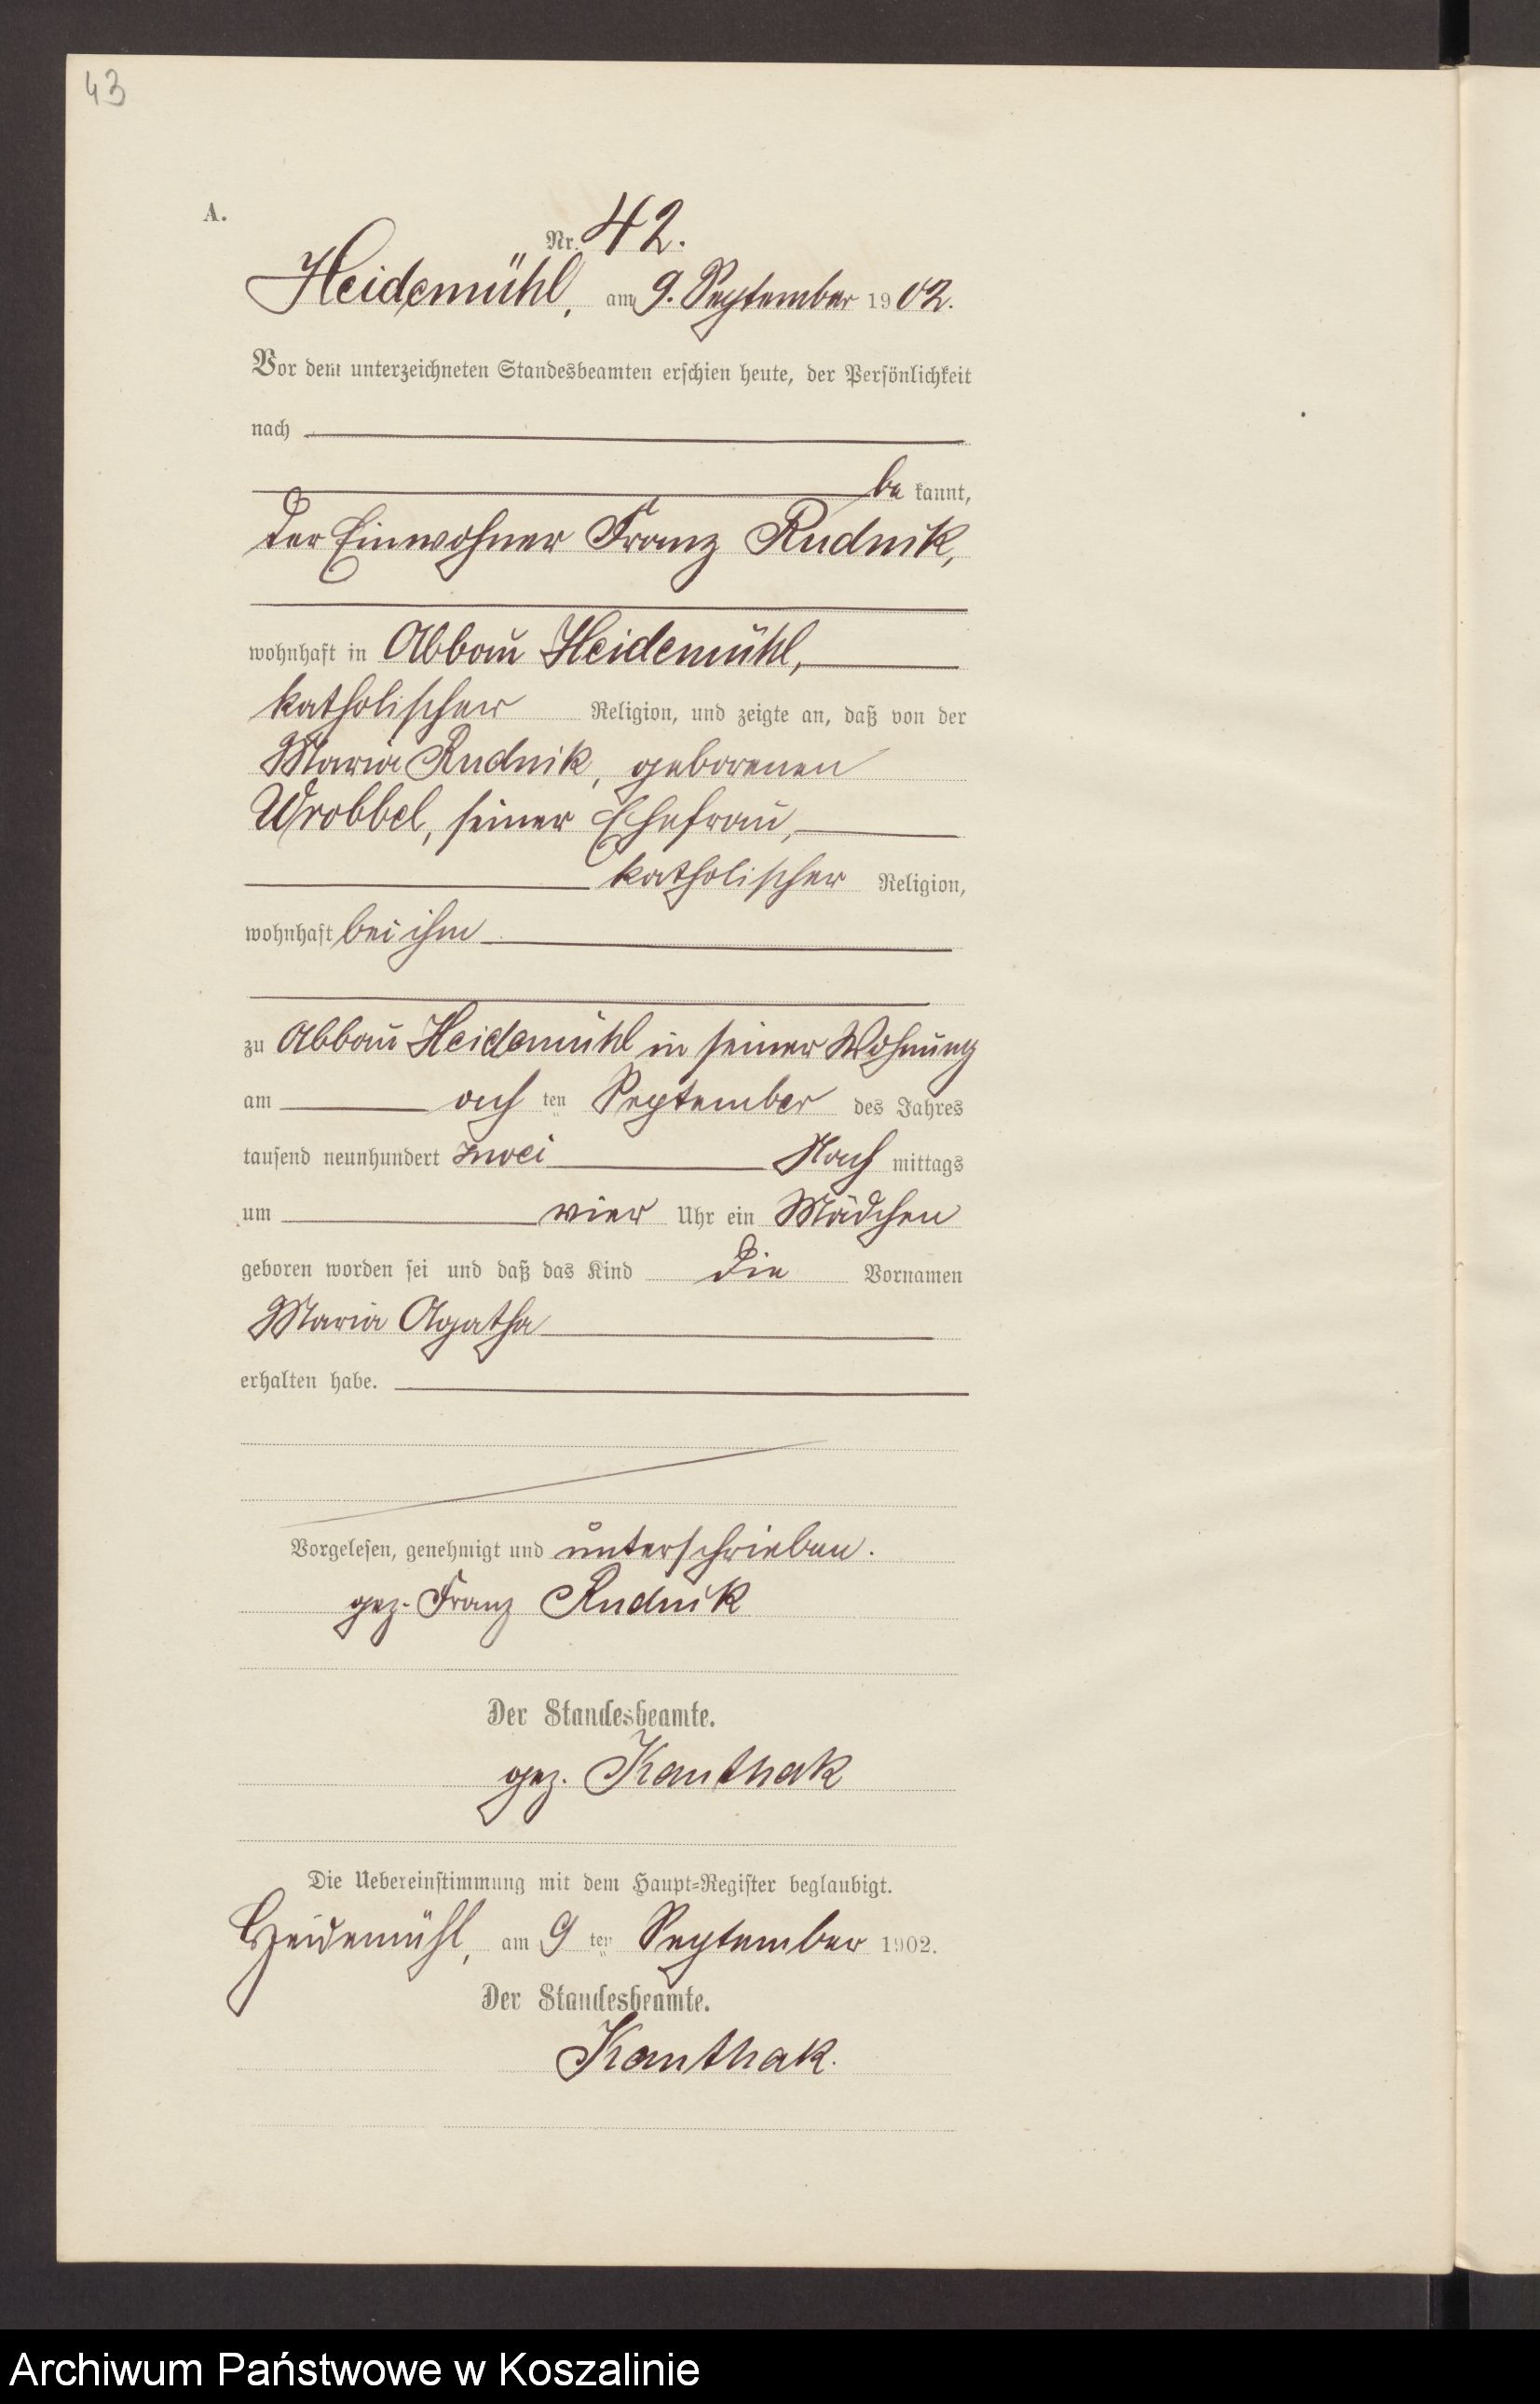 43
A.
Nr. 42.
Heidemühl, am 9. September 1902.
Vor dem unterzeichneten Standesbeamten erschien heute, der Persönlichkeit
nach
be kannt,
der Einwohner Franz Rudnik,
wohnhaft in Abbau Heidemühl,
katholischer Religion, und zeigte an, daß von der
Maria Rudnik, geborenen
Wrobbel, seiner Ehefrau,
katholischer Religion,
wohnhaft bei ihm
zu Abbau Heidemühl in seiner Wohnung
am ach ten September des Jahres
tausend neunhundert zwei Nach mittags
um vier Uhr ein Mädchen
geboren worden sei und daß das Kind die Vornamen
Maria Agatha
erhalten habe.
Vorgelesen, genehmigt und unterschrieben.
gez. Franz Rudnik
Der Standesbeamte.
gez. Kanthak
Die Uebereinstimmung mit dem Haupt-Register beglaubigt.
Heidemühl, am 9 ten September 1902.
Der Standesbeamte.
Kanthak.
Archiwum Państwowe w Koszalinie